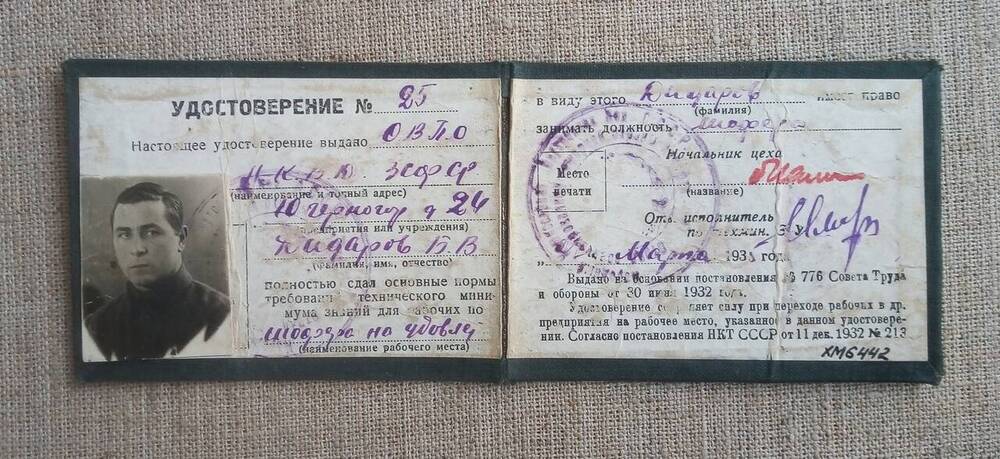 УДОСТОВЕРЕНИЕ № 25
Настоящее удостоверение выдано ОВПО
Н.К.В.Д. ЗСФСР
(наименование и точный адрес)
д 24
предприятия или учреждения)
Дидаров Б В
(фамилия, имя, отчество)
полностью сдал основные нормы
требований технического мини-
мума знаний для рабочих по
шофера на
(наименование рабочего места)
в виду этого Дидаров имеет право
(фамилия)
занимать должность шофера
Начальник цеха
Место
печати
(название)
Отв. исполнитель
по техмин.
Марта 193 год
Выдано на основании постановления № 776 Совета Труда
и обороны от 30 июня 1932 года.
Удостоверение сохраняет силу при переходе рабочих в др.
предприятия на рабочее место, указанное в данном удостовере-
нии. Согласно постановления НКТ СССР от 11 дек. 1932 № 213
ХМ6442